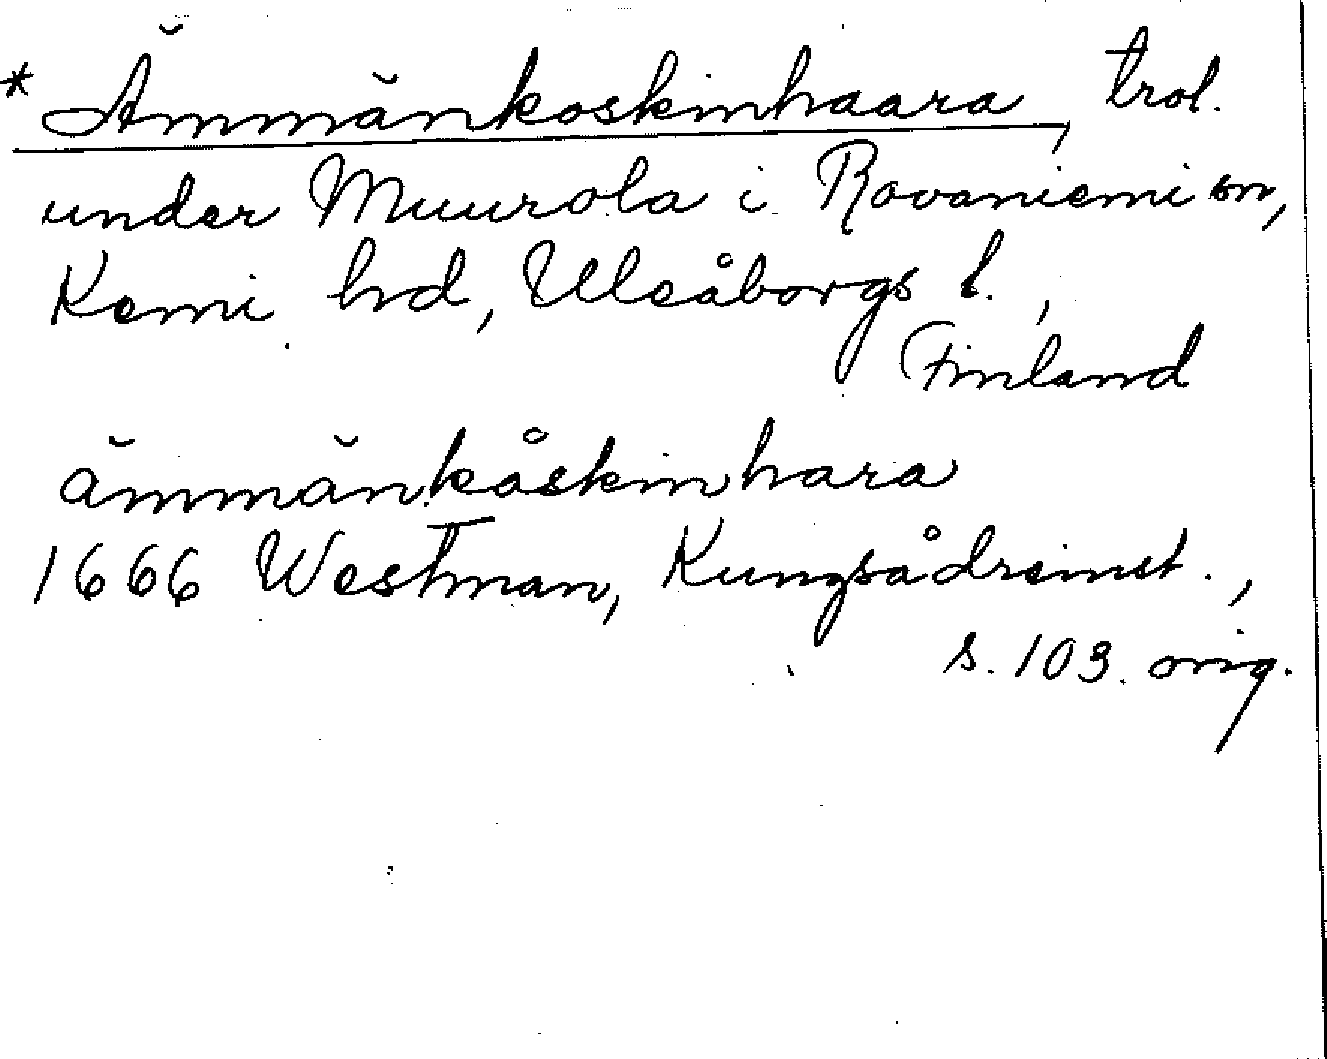 * Ämmänkoskinhaara, trol.
under Muurola i Rovaniemi sn,
Kemi hd, Uleåborgs l.,
Finland
ämmänkåskin hara
1666 Westman, Kungsådreinst.,
s. 103. orig.